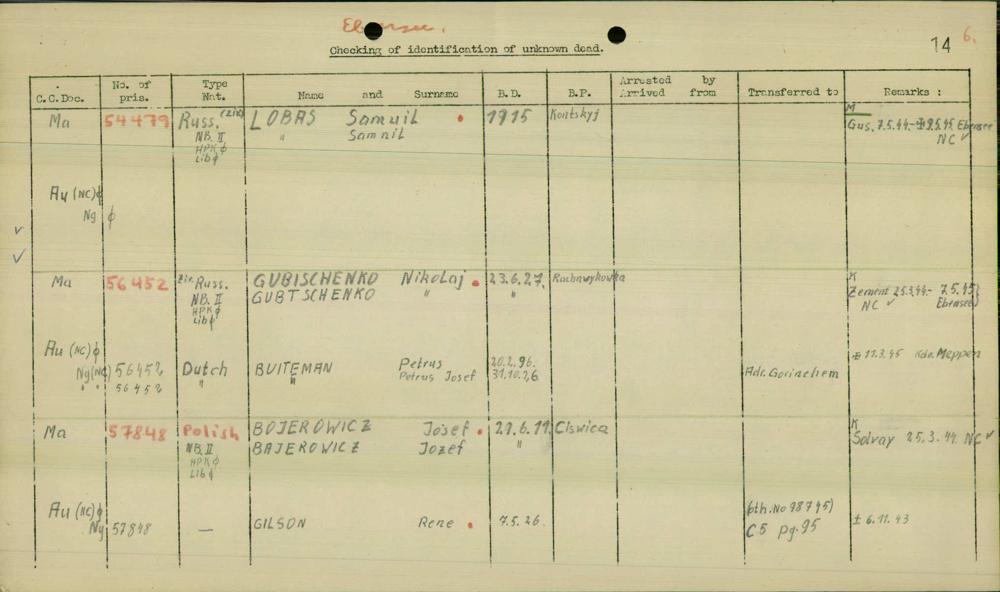 Ebensee.
Checking of identification of unknown dead.
14 6.
C.C.Doc. No. of pris. Type Nat. Name and Surname B.D. B.P. Arrested by Arrived from Transferred to Remarks :
Ma 54479 Russ. (ziv) LOBAS Samuil 1915 Koutskyj M
NB. II " Samnil Gus. 7.5.44. Ebensee
HPK ϕ NC ✓
Lib ϕ
Au (NC) ϕ
Ng ϕ
✓
✓
Ma 56452 ziv. Russ. GUBISCHENKO Nikolaj 23.6.27. K
NB. II GUBTSCHENKO " " Zement 25.3.44.- 7.5.45}
HPK ϕ NC ✓ Ebensee}
Lib ϕ
Au (NC) ϕ
Ng (NC) 56452 Dutch BUITEMAN Petrus 20.2.96. Adr. Gorinchem ± 11.3.45 Kdo. Meppen
" " 56452 " " Petrus Josef 31.10.26
Ma 57848 Polish BOJEROWICZ Josef 21.6.19. Ciswica K
NB. II BAJEROWICZ Jozef " Solvay 25.3.44. NC ✓
HPK ϕ
Lib ϕ
Au (NC) ϕ
Ng 57848 — GILSON Rene 7.5.26. (oth. No 98745) ± 6.11.43
C5 pg. 95